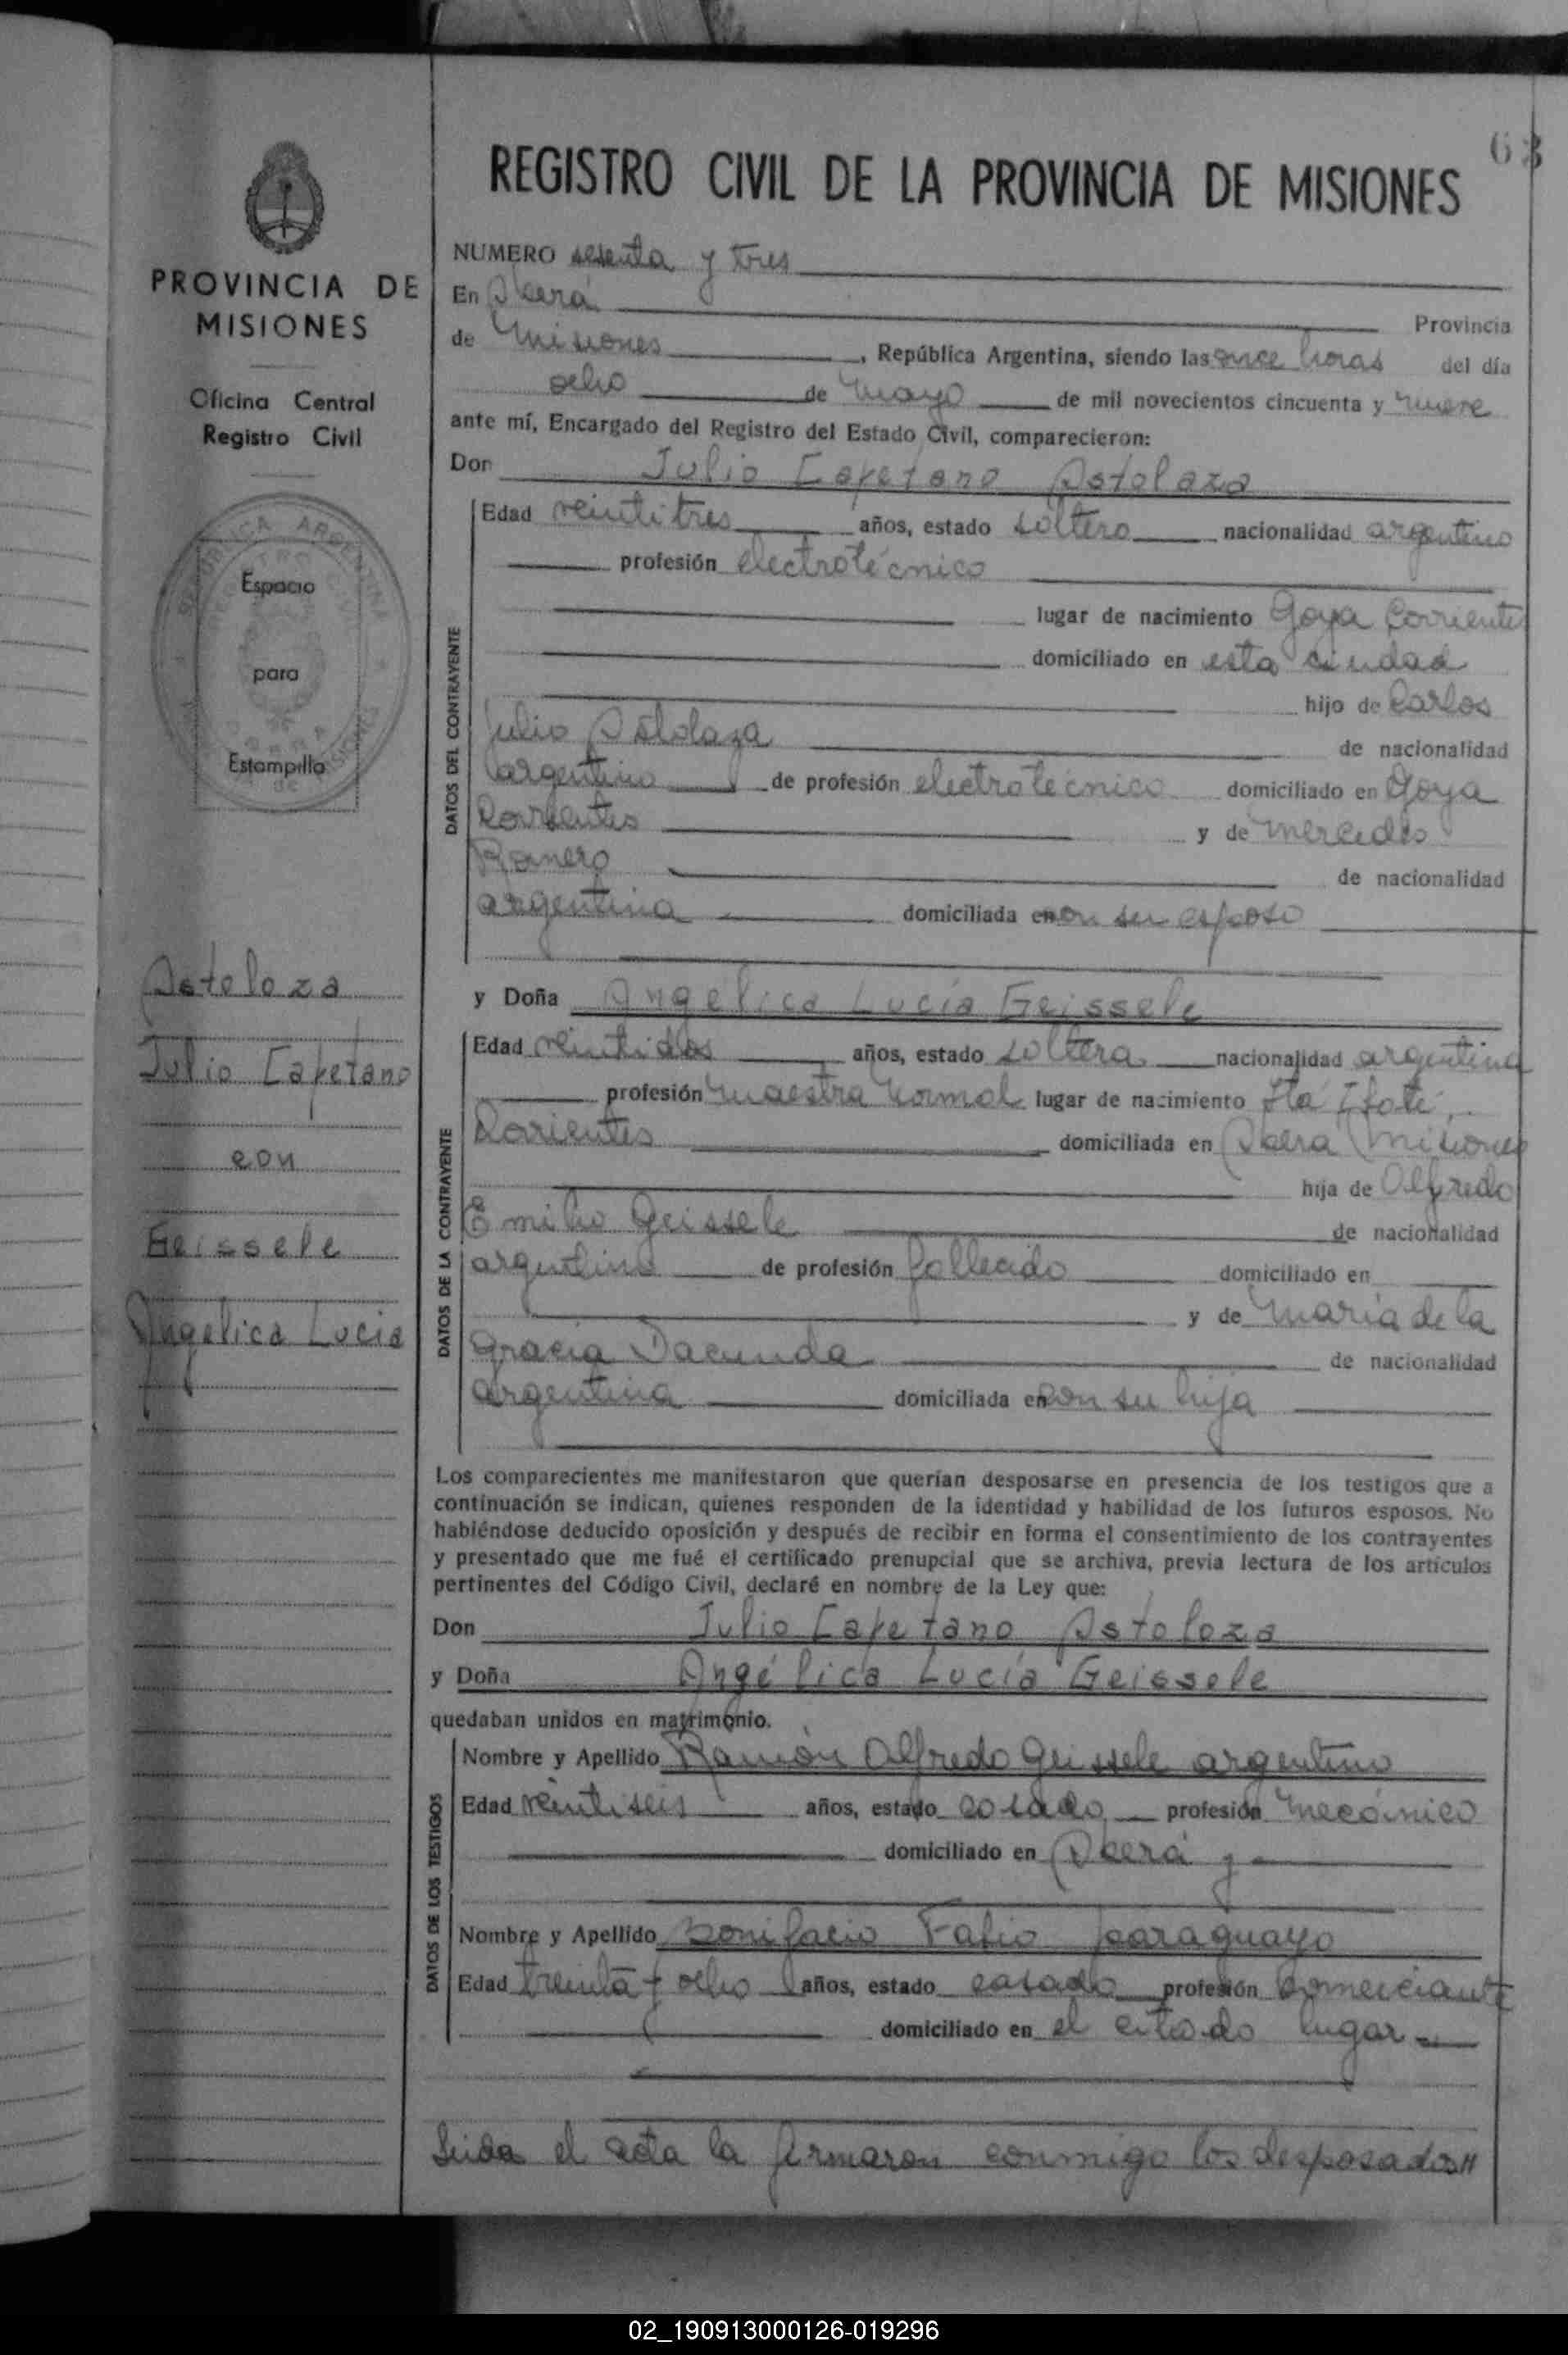 63
REGISTRO CIVIL DE LA PROVINCIA DE MISIONES
PROVINCIA DE
MISIONES
Oficina Central
Registro Civil
REPUBLICA ARGENTINA
Espacio
para
Estampilla
Astoloza
Julio Cayetano
con
Geissele
Angelica Lucia
NUMERO sesenta y tres
En Oberá Provincia
de Misiones, República Argentina, siendo las once horas del día
ocho de Mayo de mil novecientos cincuenta y nueve
ante mí, Encargado del Registro del Estado Civil, comparecieron:
Don Julio Cayetano Astolaza
DATOS DEL CONTRAYENTE
Edad veintitres años, estado soltero nacionalidad argentino
profesión electrotécnico
lugar de nacimiento Goya Corrientes
domiciliado en esta ciudad
hijo de Carlos
Julio Astolaza de nacionalidad
argentino de profesión electrotecnico domiciliado en Goya
Corrientes y de Mercedes
Romero de nacionalidad
argentina domiciliada en con su esposo
y Doña Angelica Lucía Geissele
DATOS DE LA CONTRAYENTE
Edad veintidos años, estado soltera nacionalidad argentina
profesión Maestra Normal lugar de nacimiento Ita Ibate,
Corrientes domiciliada en Oberá Misiones
hija de Alfredo
Emilio Geissele de nacionalidad
argentino de profesión fallecido domiciliado en
y de María de la
Gracia Dacunda de nacionalidad
argentina domiciliada en con su hija
Los comparecientes me manifestaron que querían desposarse en presencia de los testigos que a
continuación se indican, quienes responden de la identidad y habilidad de los futuros esposos. No
habiéndose deducido oposición y después de recibir en forma el consentimiento de los contrayentes
y presentado que me fué el certificado prenupcial que se archiva, previa lectura de los artículos
pertinentes del Código Civil, declaré en nombre de la Ley que:
Don Julio Cayetano Astoloza
y Doña Angélica Lucía Geissele
quedaban unidos en matrimonio.
DATOS DE LOS TESTIGOS
Nombre y Apellido Ramón Alfredo Geissele argentino
Edad veintiseis años, estado casado profesión Mecánico
domiciliado en Oberá y
Nombre y Apellido Bonifacio Fabio paraguayo
Edad treinta y ocho años, estado casado profesión Comerciante
domiciliado en el citado lugar
Leida el acta la firmaron conmigo los desposados//
02_190913000126-019296